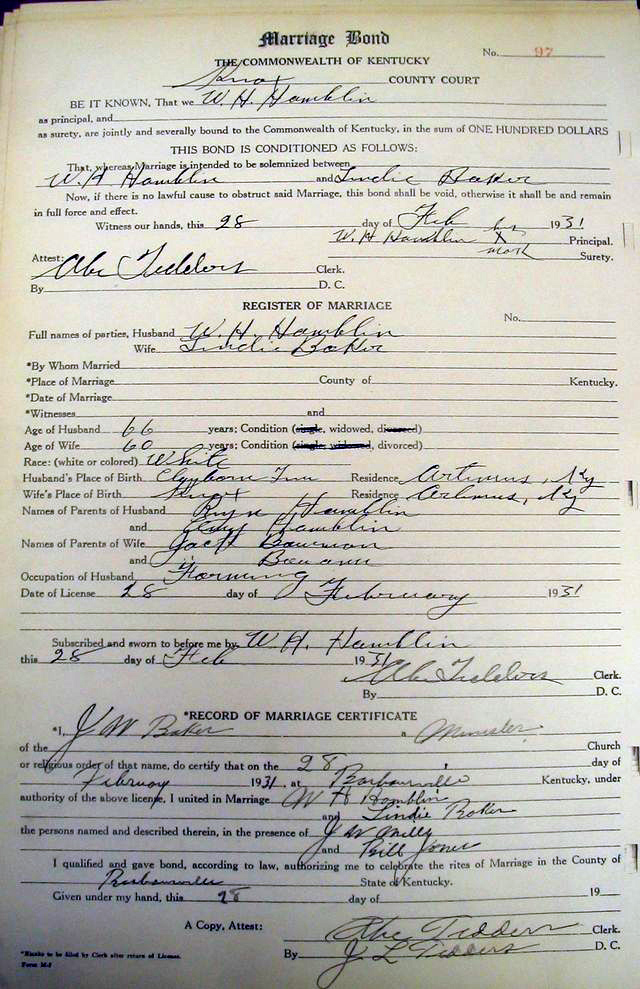 Marriage Bond
No. 97
THE COMMONWEALTH OF KENTUCKY
Knox COUNTY COURT
BE IT KNOWN, That we W. H. Hamblin
as principal, and
as surety, are jointly and severally bound to the Commonwealth of Kentucky, in the sum of ONE HUNDRED DOLLARS
THIS BOND IS CONDITIONED AS FOLLOWS:
That, whereas Marriage is intended to be solemnized between
W. H Hamblin and Lindie Baker
Now, if there is no lawful cause to obstruct said Marriage, this bond shall be void, otherwise it shall be and remain
in full force and effect.
Witness our hands, this 28 day of Feb 1931
W. H Hamblin his X mark Principal.
Attest: Surety.
Abe Tedders Clerk.
By D. C.
REGISTER OF MARRIAGE
No.
Full names of parties, Husband W. H. Hamblin
Wife Lindie Baker
*By Whom Married
*Place of Marriage County of Kentucky.
*Date of Marriage
*Witnesses and
Age of Husband 66 years; Condition (single, widowed, divorced)
Age of Wife 60 years; Condition (single, widowed, divorced)
Race: (white or colored) White
Husband's Place of Birth Clyborn Tnn Residence Artimus, Ky
Wife's Place of Birth Knox Residence Artimus, Ky
Names of Parents of Husband Hamblin
and Hamblin
Names of Parents of Wife Jack Bowman
and
Occupation of Husband Farming
Date of License 28 day of February 1931
Subscribed and sworn to before me by W. H. Hamblin
this 28 day of Feb 1931
Abe Tedders Clerk.
By D. C.
*RECORD OF MARRIAGE CERTIFICATE
*I, J W Baker a Minister
of the Church
or religious order of that name, do certify that on the 28 day of
February 1931, at Barbourville Kentucky, under
authority of the above license, I united in Marriage W H Hamblin
and Lindie Baker
the persons named and described therein, in the presence of J W Mills
and Bill Jones
I qualified and gave bond, according to law, authorizing me to celebrate the rites of Marriage in the County of
Barbourville State of Kentucky.
Given under my hand, this 28 day of 19
A Copy, Attest: Abe Tedders Clerk.
By J L Tedders D. C.
*Blanks to be filed by Clerk after return of License.
Form M-1